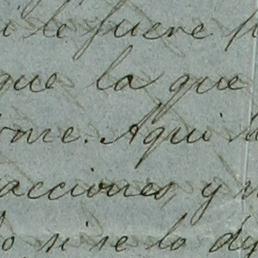 le fuere
que la que
Aqui
acciones, y
si se lo